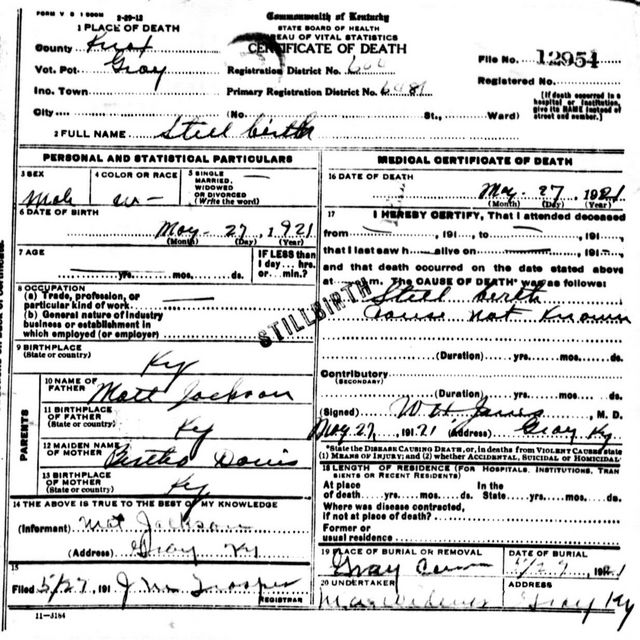 FORM V S 1 500M 2-29-12
Commonwealth of Kentucky
STATE BOARD OF HEALTH
BUREAU OF VITAL STATISTICS
CERTIFICATE OF DEATH
1 PLACE OF DEATH
County Knox
Vot. Pct Gray
Inc. Town
City (No. St., Ward)
Registration District No.
Primary Registration District No. 6981
File No. 12954
Registered No.
[If death occurred in a
hospital or institution,
give its NAME instead of
street and number.]
2 FULL NAME Still birth
PERSONAL AND STATISTICAL PARTICULARS
3 SEX Male
4 COLOR OR RACE W
5 SINGLE
MARRIED,
WIDOWED
OR DIVORCED
(Write the word)
6 DATE OF BIRTH
May 27, 1921
(Month) (Day) (Year)
7 AGE
yrs. mos. ds.
IF LESS than
1 day ... hrs.
or ... min.?
8 OCCUPATION
(a) Trade, profession, or
particular kind of work
(b) General nature of industry
business or establishment in
which employed (or employer)
STILLBIRTH
9 BIRTHPLACE
(State or country) Ky
PARENTS
10 NAME OF
FATHER Matt Jackson
11 BIRTHPLACE
OF FATHER
(State or country) Ky
12 MAIDEN NAME
OF MOTHER Bertha Davis
13 BIRTHPLACE
OF MOTHER
(State or country) Ky
14 THE ABOVE IS TRUE TO THE BEST OF MY KNOWLEDGE
(Informant) Mat Jackson
(Address) Gray Ky
15
Filed 5/27, 191
REGISTRAR
11-3184
MEDICAL CERTIFICATE OF DEATH
16 DATE OF DEATH
May 27 1921
(Month) (Day) (Year)
17 I HEREBY CERTIFY, That I attended deceased
from 191 to 191
that I last saw h alive on 191
and that death occurred on the date stated above
at m. The CAUSE OF DEATH* was as follows:
Still birth
Cause not Known
(Duration) yrs. mos. ds.
Contributory
(SECONDARY)
(Duration) yrs. mos. ds.
(Signed) , M. D.
May 27, 1921 (Address) Gray Ky
*State the DISEASE CAUSING DEATH, or, in deaths from VIOLENT CAUSES state
(1) MEANS OF INJURY; and (2) whether ACCIDENTAL, SUICIDAL or HOMICIDAL
18 LENGTH OF RESIDENCE (FOR HOSPITALS, INSTITUTIONS, TRAN
SIENTS OR RECENT RESIDENTS)
At place In the
of death yrs. mos. ds. State yrs. mos. ds.
Where was disease contracted,
if not at place of death?
Former or
usual residence
19 PLACE OF BURIAL OR REMOVAL Gray
DATE OF BURIAL 1921
20 UNDERTAKER
ADDRESS Gray Ky